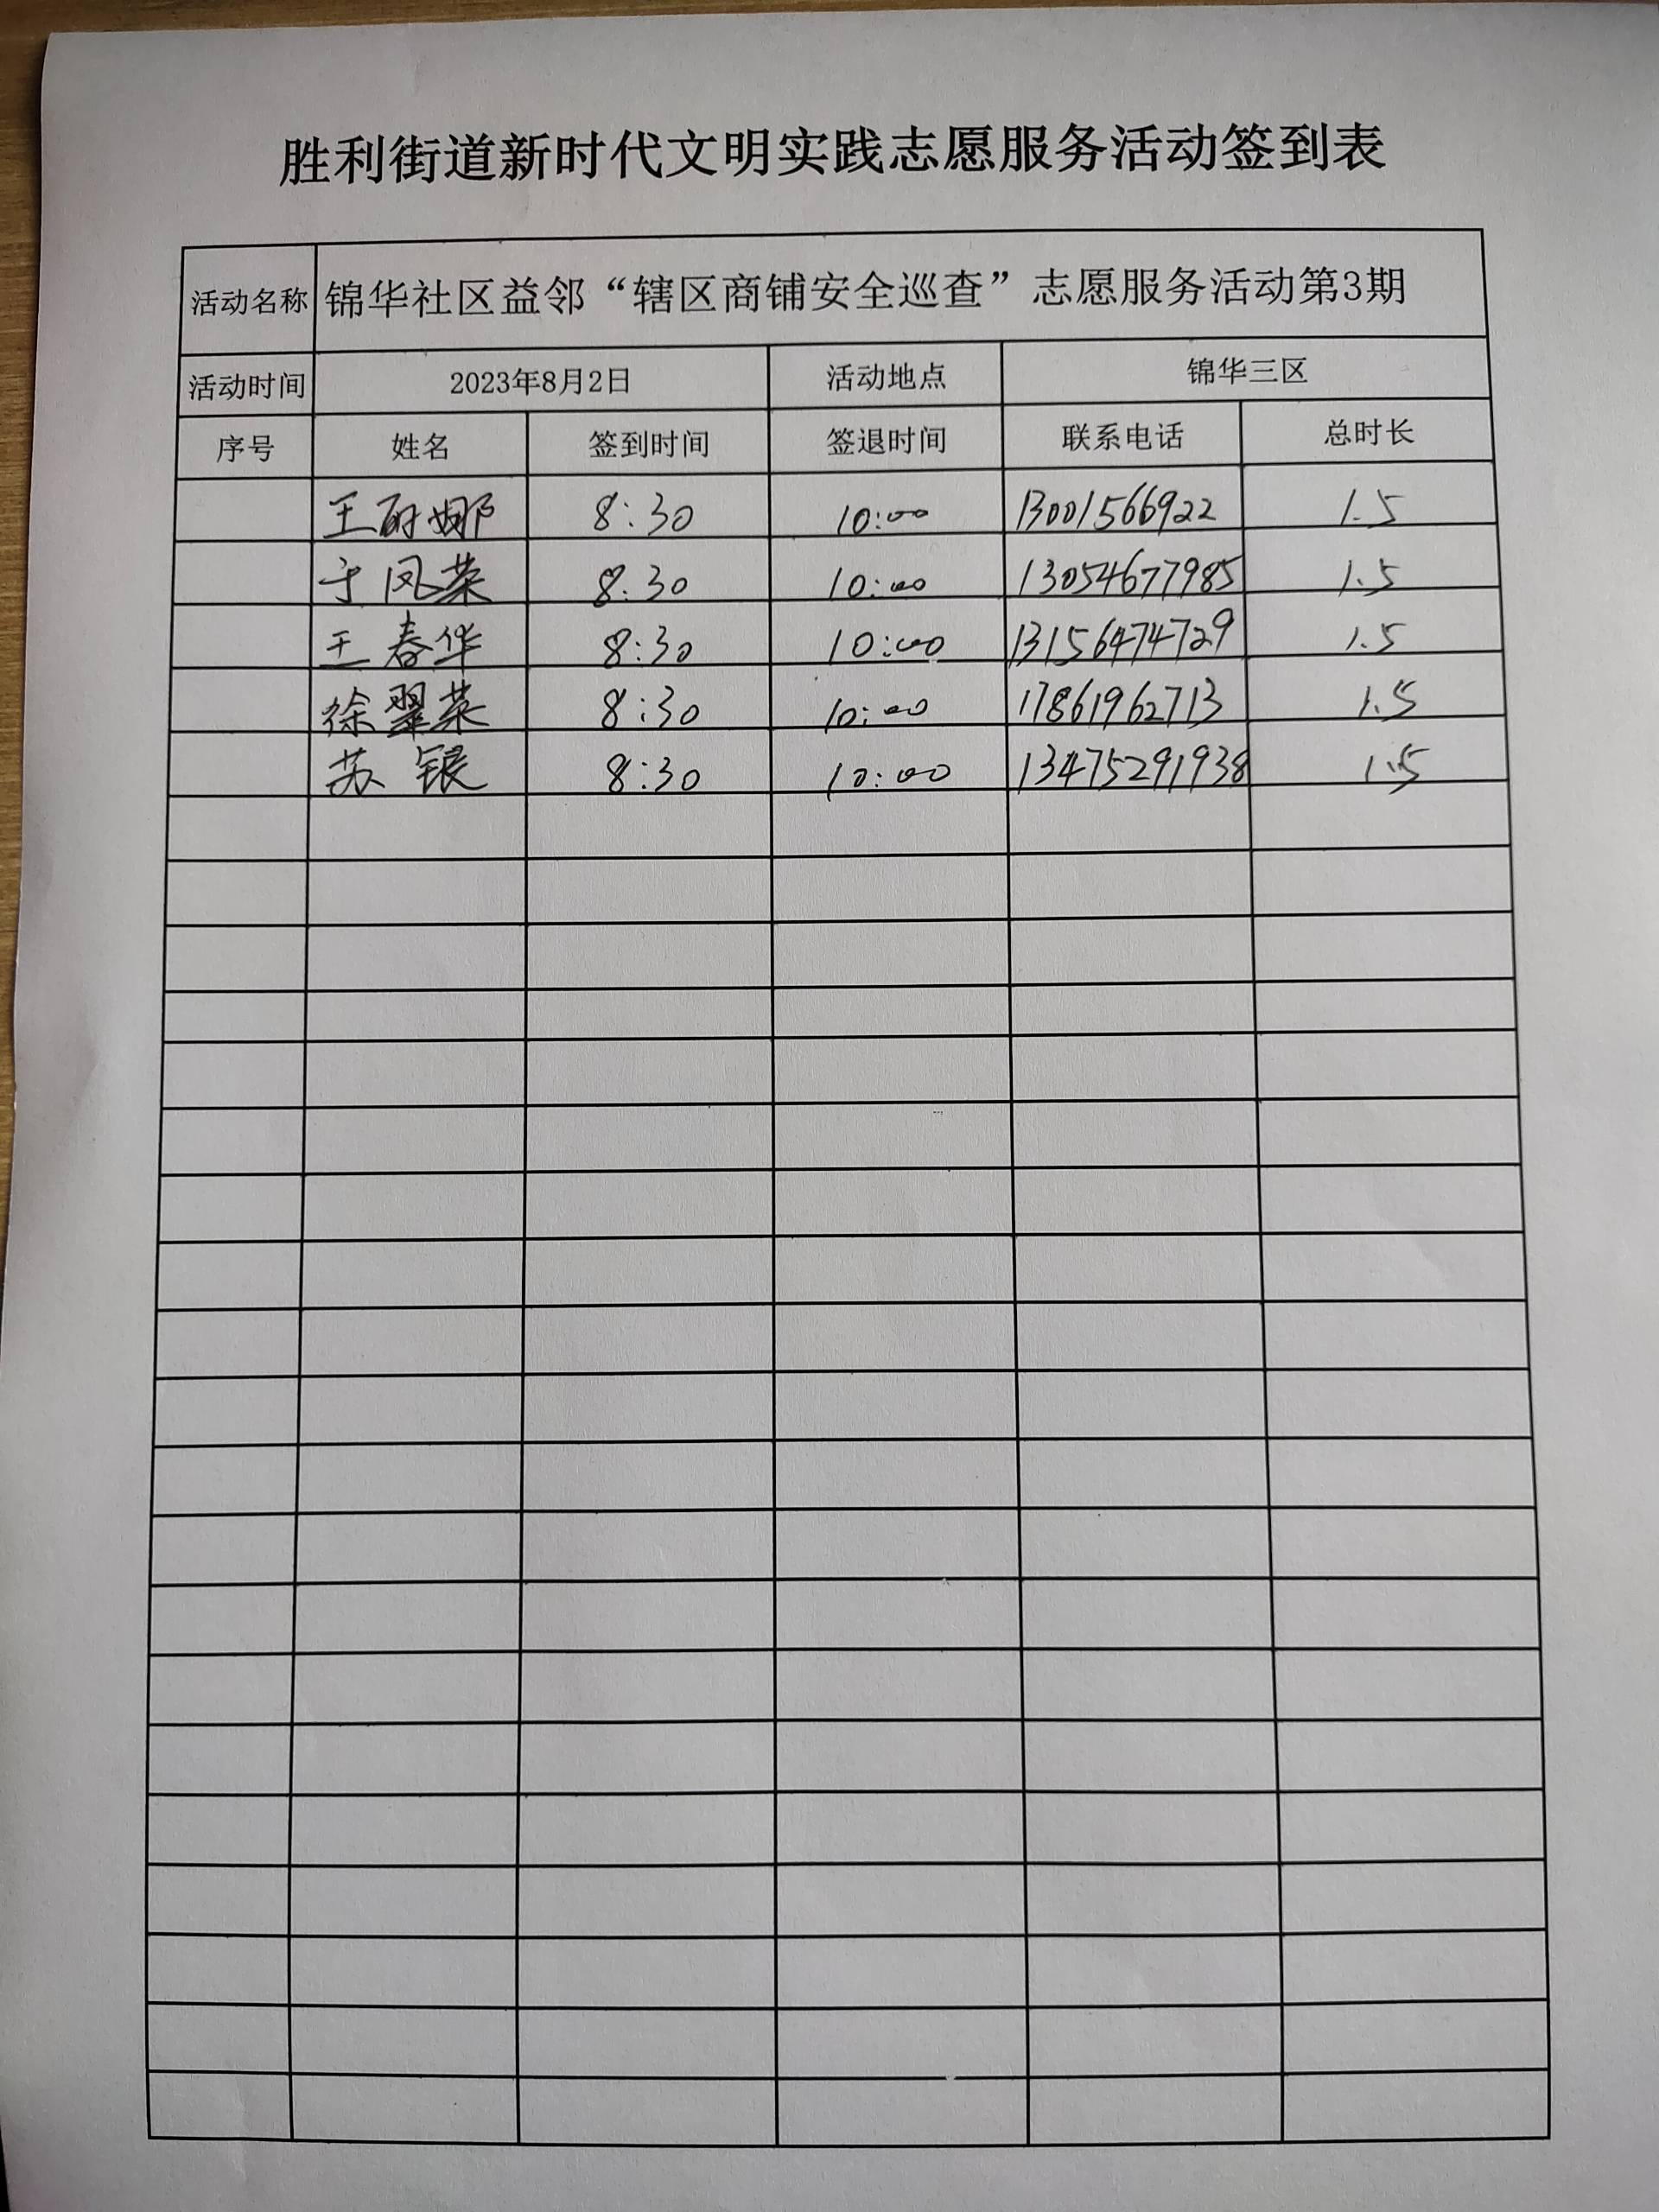 胜利街道新时代文明实践志愿服务活动签到表
活动名称 锦华社区益邻“辖区商铺安全巡查”志愿服务活动第3期
活动时间 2023年8月2日 活动地点 锦华三区
序号 姓名 签到时间 签退时间 联系电话 总时长
王 娜 8:30 10:00 13001566922 1.5
于凤荣 8:30 10:00 13054677985 1.5
王春华 8:30 10:00 13156474729 1.5
徐翠英 8:30 10:00 17861962713 1.5
苏银 8:30 10:00 13475291938 1.5